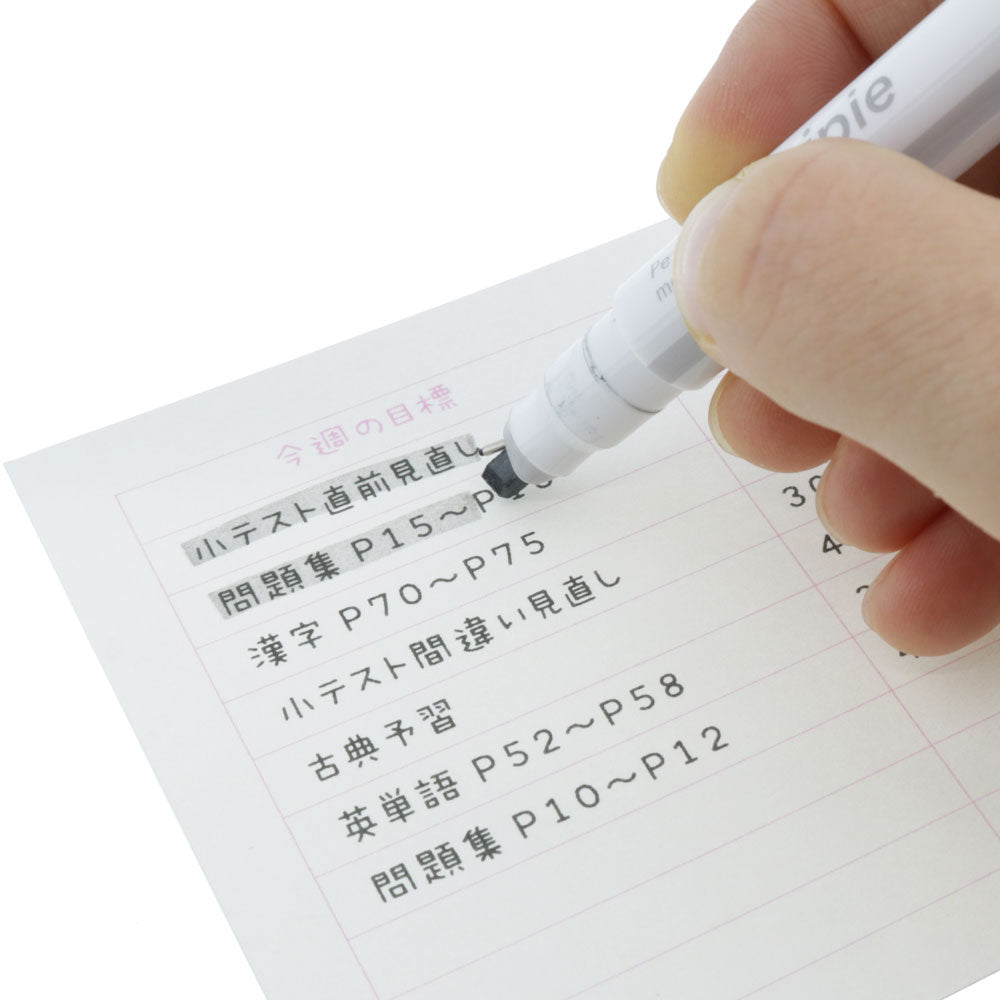 今週の目標
小テスト直前見直し
問題集 P15〜P
漢字 P70〜P75
小テスト間違い見直し
古典予習
英単語 P52〜P58
問題集 P10〜P12
30
4
ipie
Pe